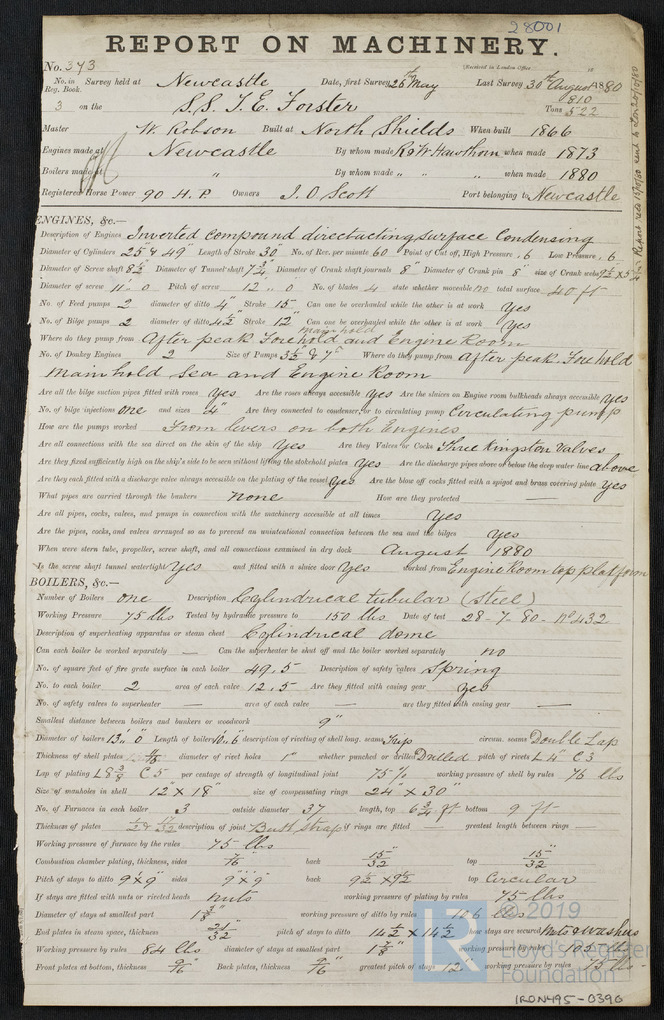 28001
REPORT ON MACHINERY.
No. 373 (Received in London Office 18
No. in Reg. Book. Survey held at Newcastle Date, first Survey 26th May Last Survey 30th August 1880
810
3 on the S.S. T. E. Forster Tons 522
Master W. Robson Built at North Shields When built 1866
Engines made at Newcastle By whom made R & W Hawthorn when made 1873
Boilers made at " By whom made " " when made 1880
Registered Horse Power 90 H.P. Owners J. O Scott Port belonging to Newcastle
ENGINES, &c.—
Description of Engines Inverted compound direct acting surface Condensing
Diameter of Cylinders 25" & 49" Length of Stroke 30" No. of Rev. per minute 60 Point of Cut off, High Pressure .6 Low Pressure .6
Diameter of Screw shaft 8½ Diameter of Tunnel shaft 7¾ Diameter of Crank shaft journals 8" Diameter of Crank pin 8" size of Crank webs 9½ x 5½
Diameter of screw 11'. 0 Pitch of screw 12.. 0 No. of blades 4 state whether moveable no total surface 40 ft
No. of Feed pumps 2 diameter of ditto 4" Stroke 15 Can one be overhauled while the other is at work Yes
No. of Bilge pumps 2 diameter of ditto 4½ Stroke 12" Can one be overhauled while the other is at work Yes
Where do they pump from After peak Forehold Main hold and Engine Room
No. of Donkey Engines 2 Size of Pumps 3½ & 7" Where do they pump from After peak. Fore hold
Main hold Sea and Engine Room
Are all the bilge suction pipes fitted with roses Yes Are the roses always accessible Yes Are the sluices on Engine room bulkheads always accessible Yes
No. of bilge injections one and sizes 4" Are they connected to condenser, or to circulating pump Circulating pump
How are the pumps worked From levers on both Engines
Are all connections with the sea direct on the skin of the ship Yes Are they Valves or Cocks Three Kingston Valves
Are they fixed sufficiently high on the ship's side to be seen without lifting the stokehold plates Yes Are the discharge pipes above or below the deep water line above
Are they each fitted with a discharge valve always accessible on the plating of the vessel Yes Are the blow off cocks fitted with a spigot and brass covering plate Yes
What pipes are carried through the bunkers none How are they protected —
Are all pipes, cocks, valves, and pumps in connection with the machinery accessible at all times Yes
Are the pipes, cocks, and valves arranged so as to prevent an unintentional connection between the sea and the bilges Yes
When were stern tube, propeller, screw shaft, and all connections examined in dry dock August 1880
Is the screw shaft tunnel watertight Yes and fitted with a sluice door Yes worked from Engine Room top platform
BOILERS, &c.—
Number of Boilers one Description Cylindrical tubular (Steel)
Working Pressure 75 lbs Tested by hydraulic pressure to 150 lbs Date of test 28-7-80- No 432
Description of superheating apparatus or steam chest Cylindrical dome
Can each boiler be worked separately — Can the superheater be shut off and the boiler worked separately no
No. of square feet of fire grate surface in each boiler 49.5 Description of safety valves Spring
No. to each boiler 2 area of each valve 12.5 Are they fitted with easing gear yes
No. of safety valves to superheater — area of each valve — are they fitted with easing gear —
Smallest distance between boilers and bunkers or woodwork 9"
Diameter of boilers 13'. 0 Length of boilers 10'. 6 description of riveting of shell long. seams Trip circum. seams Double Lap
Thickness of shell plates diameter of rivet holes 1" whether punched or drilled Drilled pitch of rivets L 4" C 3
Lap of plating L 8⅜ C 5" per centage of strength of longitudinal joint 75 % working pressure of shell by rules 76 lbs
Size of manholes in shell 12" x 18" size of compensating rings 24" x 30"
No. of Furnaces in each boiler 3 outside diameter 37 length, top 6¾ ft bottom 9 ft
Thickness of plates ½ & 17/32 description of joint Butt straps if rings are fitted — greatest length between rings —
Working pressure of furnace by the rules 75 lbs
Combustion chamber plating, thickness, sides 7/16 back 15/32 top 15/32
Pitch of stays to ditto 9" x 9" sides 9" x 9 back 9½ x 9½ top Circular
If stays are fitted with nuts or riveted heads nuts working pressure of plating by rules 75 lbs
Diameter of stays at smallest part 1⅜" working pressure of ditto by rules 106 lbs
End plates in steam space, thickness 21/32 pitch of stays to ditto 14½ x 14½ how stays are secured Nuts & washers
Working pressure by rules 84 lbs diameter of stays at smallest part working pressure by rules
Front plates at bottom, thickness 9/16 Back plates, thickness 9/16 greatest pitch of stays 12" working pressure by rules 75 lbs
© 2019
Lloyd's Register
Foundation
IRON495-0390